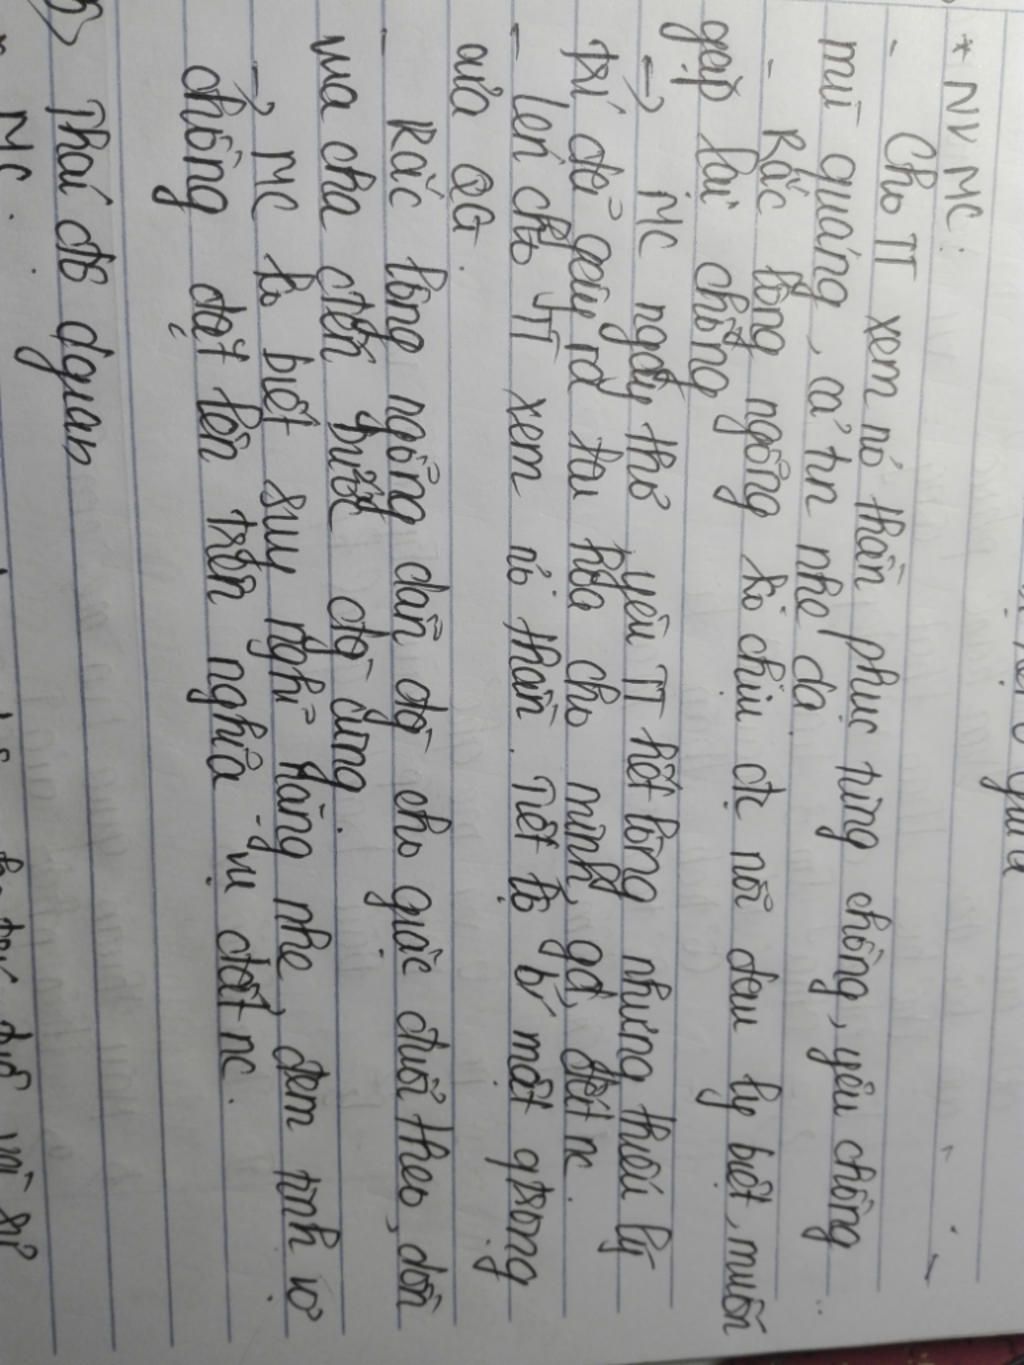 * NV MC:
- Cho TT xem nỏ thần phục tùng chồng, yêu chồng
mù quáng, cả tin nhẹ dạ
- Rắc lông ngỗng ko chịu đc nỗi đau ly biệt, muốn
gặp lại chồng
→ MC ngây thơ yêu TT hết lòng nhưng thiếu lý
trí đã gây ra tai họa cho mình, gđ, đất nc.
- Lén cho TT xem nỏ thần. Tiết lộ bí mật qtrọng
của QG.
- Rắc lông ngỗng dẫn đg cho giặc đuổi theo, dồn
vua cha đến bước đg cùng.
→ MC ko biết suy nghĩ hàng nhẹ, đem tình vợ
chồng đặt lên trên nghĩa vụ đất nc.
Thái độ dgian
MC.